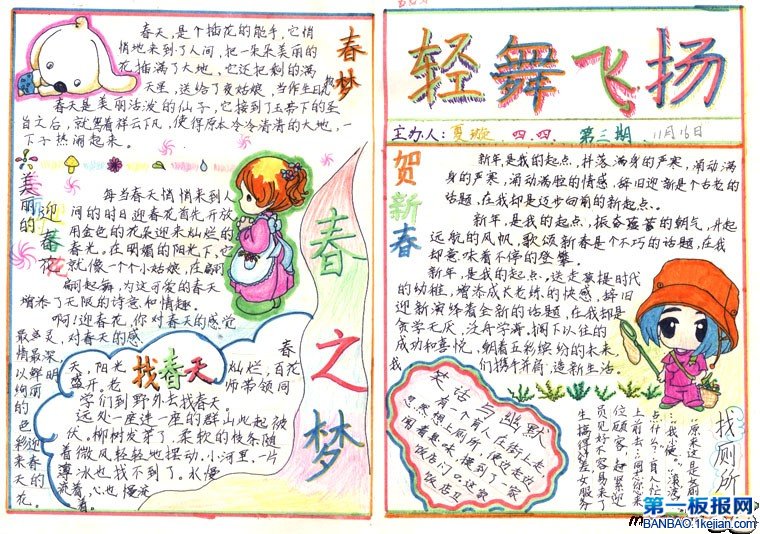 春梦
春天,是个插花的能手,它悄
悄地来到了人间,把一朵朵美丽的
花插满了大地,它还把剩的满
天星,送给了夏姑娘,当作生日礼
春天是美丽活波的仙子,它接到玉帝下的圣
旨之后,就驾着祥云下凡,使得原本冷冷清清的大地,一
下子热闹起来。
美丽的迎春花
每当春天悄悄来到人
间的时日迎春花首先开放
用金色的花朵迎来灿烂的
春光。在明媚的阳光下,它
就像一个个小姑娘,在翩
翩起舞,为这可爱的春天
增添了无限的诗意和情趣。
啊!迎春花,你对春天的感觉
最灵,对春天的感
情最深,
以鲜明
绚丽的
色彩迎
来春天的
花。
找春天
春
天,阳光灿烂,百花
盛开。老师带领同
学们到野外去找春天。
远处一座连一座的群山此起彼
伏。柳树发芽了,柔软的枝条随
着微风轻轻地摆动,小河里一片
薄冰也找不到了。水慢
流着,
春之梦
轻舞飞扬
主办人:夏璇 四.四. 第三期 11月16日
贺新春
新年,是我的起点,抖落满身的严寒,涌动满
身的严寒,涌动满腔的情感,辞旧迎新是个古老的
话题,在我却是迈步向前的新起点。
新年,是我的起点,振奋蓬勃的朝气,升起
远航的风帆,歌颂新春是个不巧的话题,在我
却意味着不停的登攀。
新年,是我的起点,送走莫提时代
的幼稚,增添成长老练的快感,辞旧
迎新演绎着全新的话题,在我却是
贪学无厌,泛舟学海,搁下以往的
成功和喜悦,朝着五彩缤纷的未来,
我们携手并肩,造新生活。
笑话与幽默
找厕所
有一个盲人在街上走,
忽然想上厕所,便边走边
闻着臭味,摸到了一家
饭店门口,这家
饭店
第一板报网
BANBAO.1kejian.com